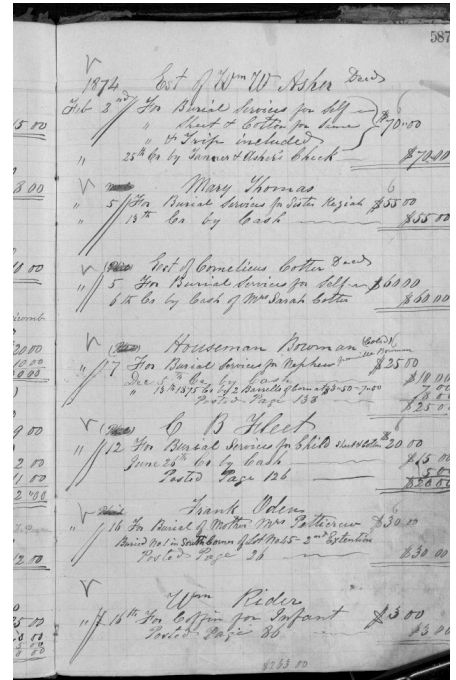 587
1874 Est of Wm W Asher Decd
Feb 2nd For Burial Services for Self
5.00 " Sheet & Cotton for same $70.00
" & Trip included
" 25th Cr by Tanner & Asher's Check $70.00
8.00 Mary Thomas
" 5 For Burial Services for Sister Keziah $55.00
" 13th Cr by Cash $55.00
Est of Cornelieus Cotter Decd
10 00 " 5 For Burial Services for Self $60.00
6th Cr by Cash of Mrs Sarah Cotter $60.00
Houseman Bowman (Cold)
20.00 " 7 For Burial Services for Nephew $25.00
10 00 Dec 5th Cr by Cash $10.00
" 13th 1875 Cr by 2 Barrells of Corn at 3.50 - 7.00 7.00
Posted Page 138 8.00
$25.00
9 00 C B Fleet
" 12 For Burial Services for Child Sheet & Cotton $20.00
2 00 June 26th Cr by Cash $15.00
1 00 Posted Page 126 5.00
2 00 $20.00
Frank Oden
" 16 For Burial of Mother Mrs Potticrew $30.00
Buried No 1 in South Corner of Lot No 45 - 2nd Extention
12.00 Posted Page 26 $30.00
Wm Rider
" 16th For Coffin for Infant $3.00
Posted Page 86 $3.00
$263.00